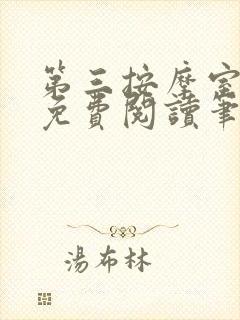 第三按摩室
免費閱讀筆
湯布林